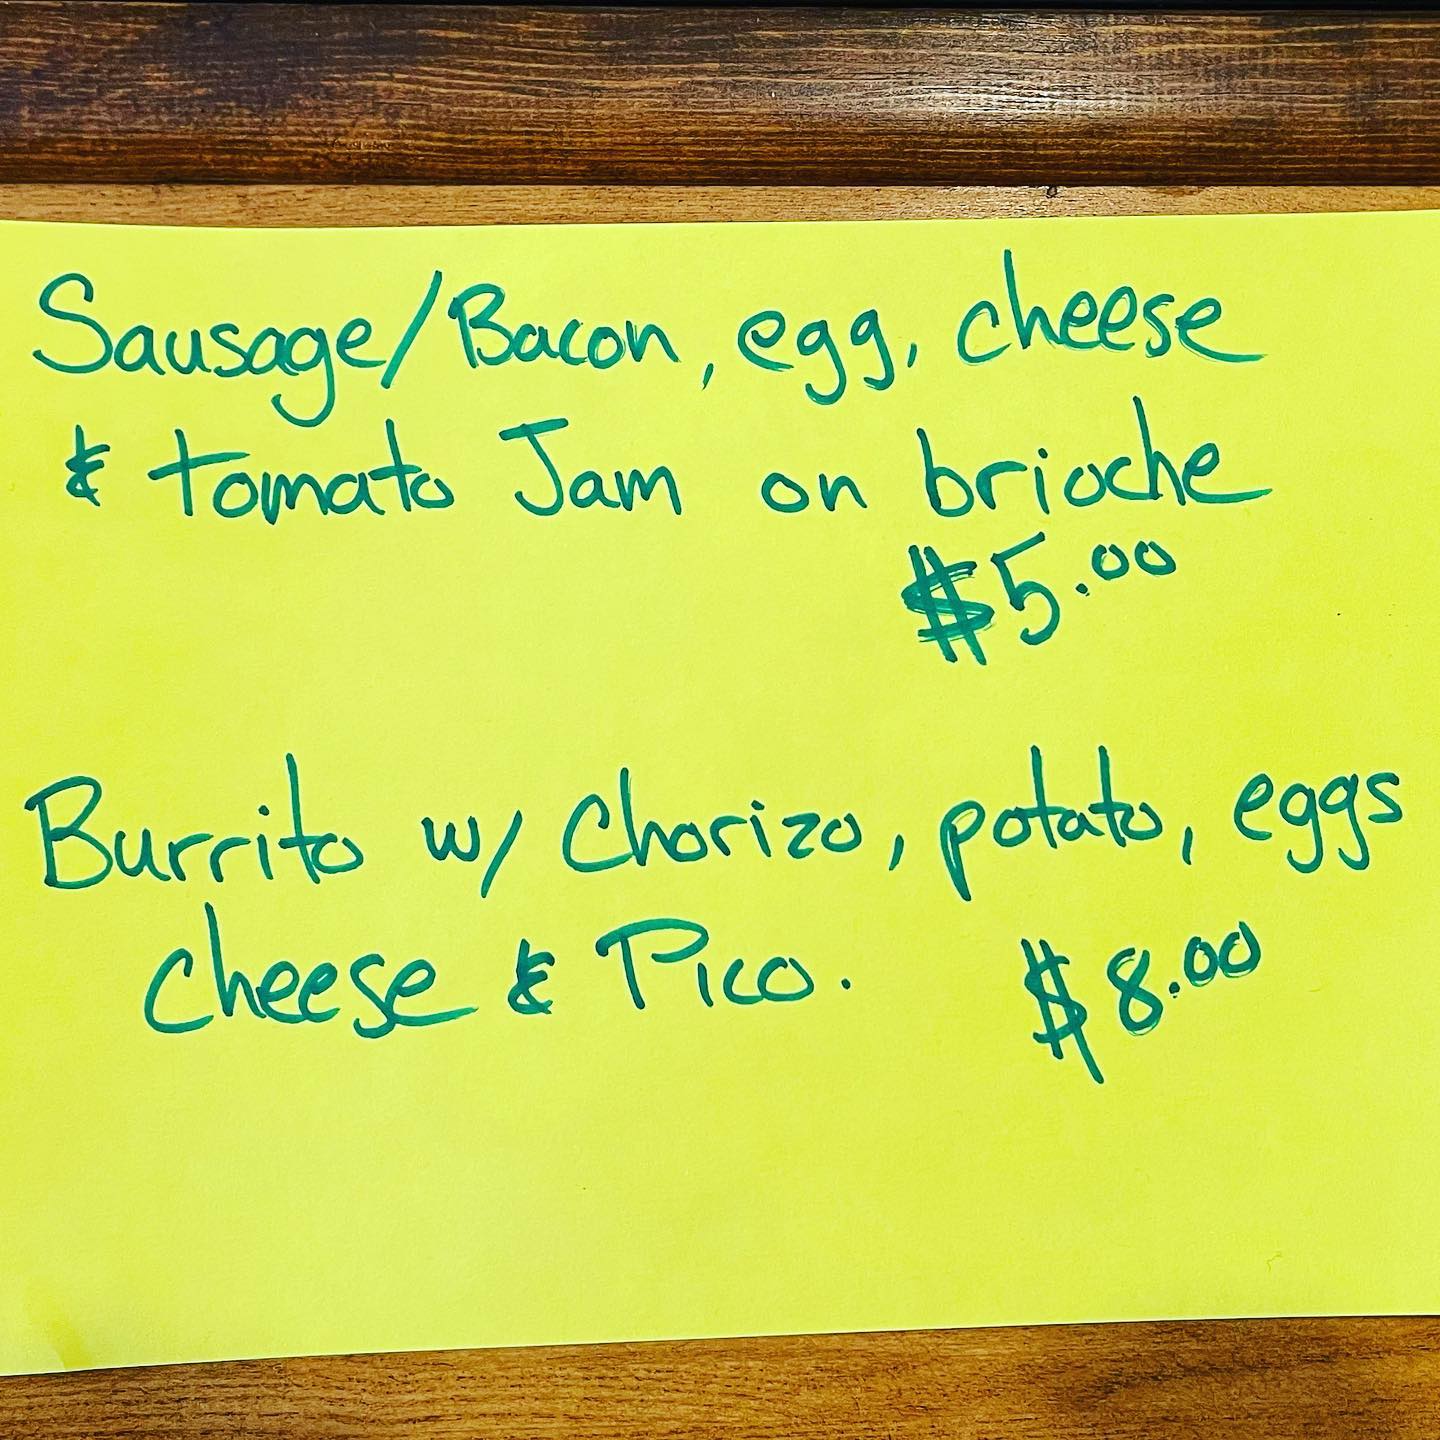 Sausage/Bacon, egg, cheese
& tomato Jam on brioche
$5.00
Burrito w/ Chorizo, potato, eggs
cheese & Pico. $8.00